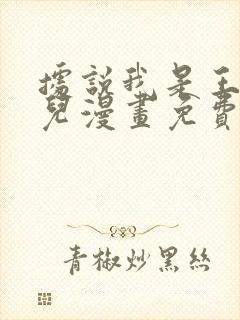 據說我是王
兒漫畫免費
青椒炒黑絲